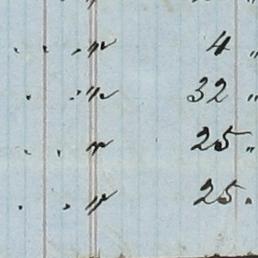 . . . " 4 "
. . " 32 "
. . " 25 "
. . " 25 .